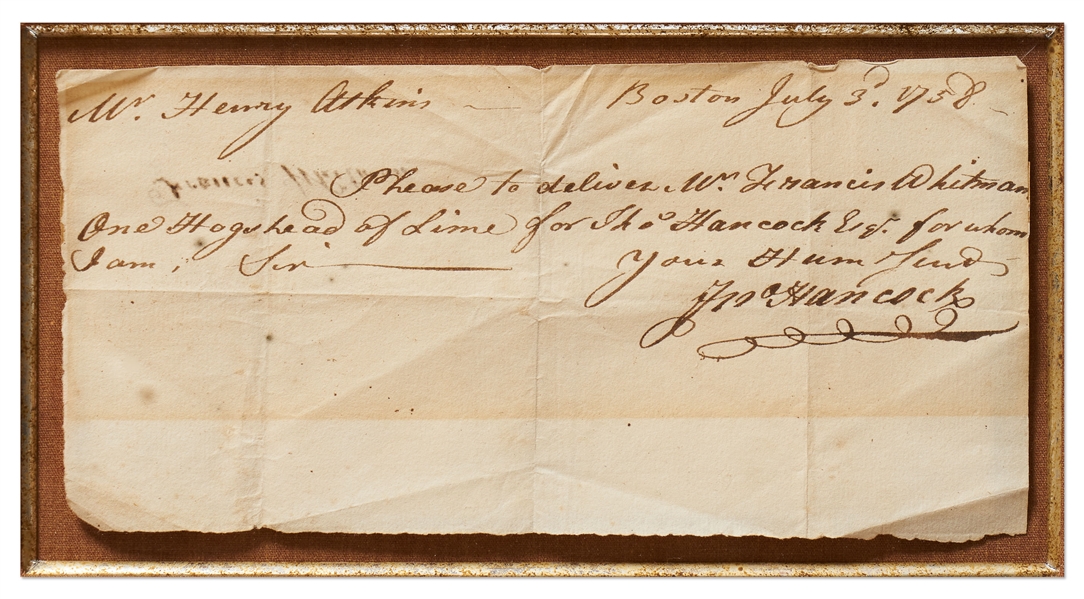 Mr. Henry Atkins Boston July 3d. 1758.
Francis
Please to deliver Mr. Francis Whitman
One Hogshead of Lime for Tho° Hancock Esqr. for whom
I am, Sir Your Hum Servt
Jn° Hancock